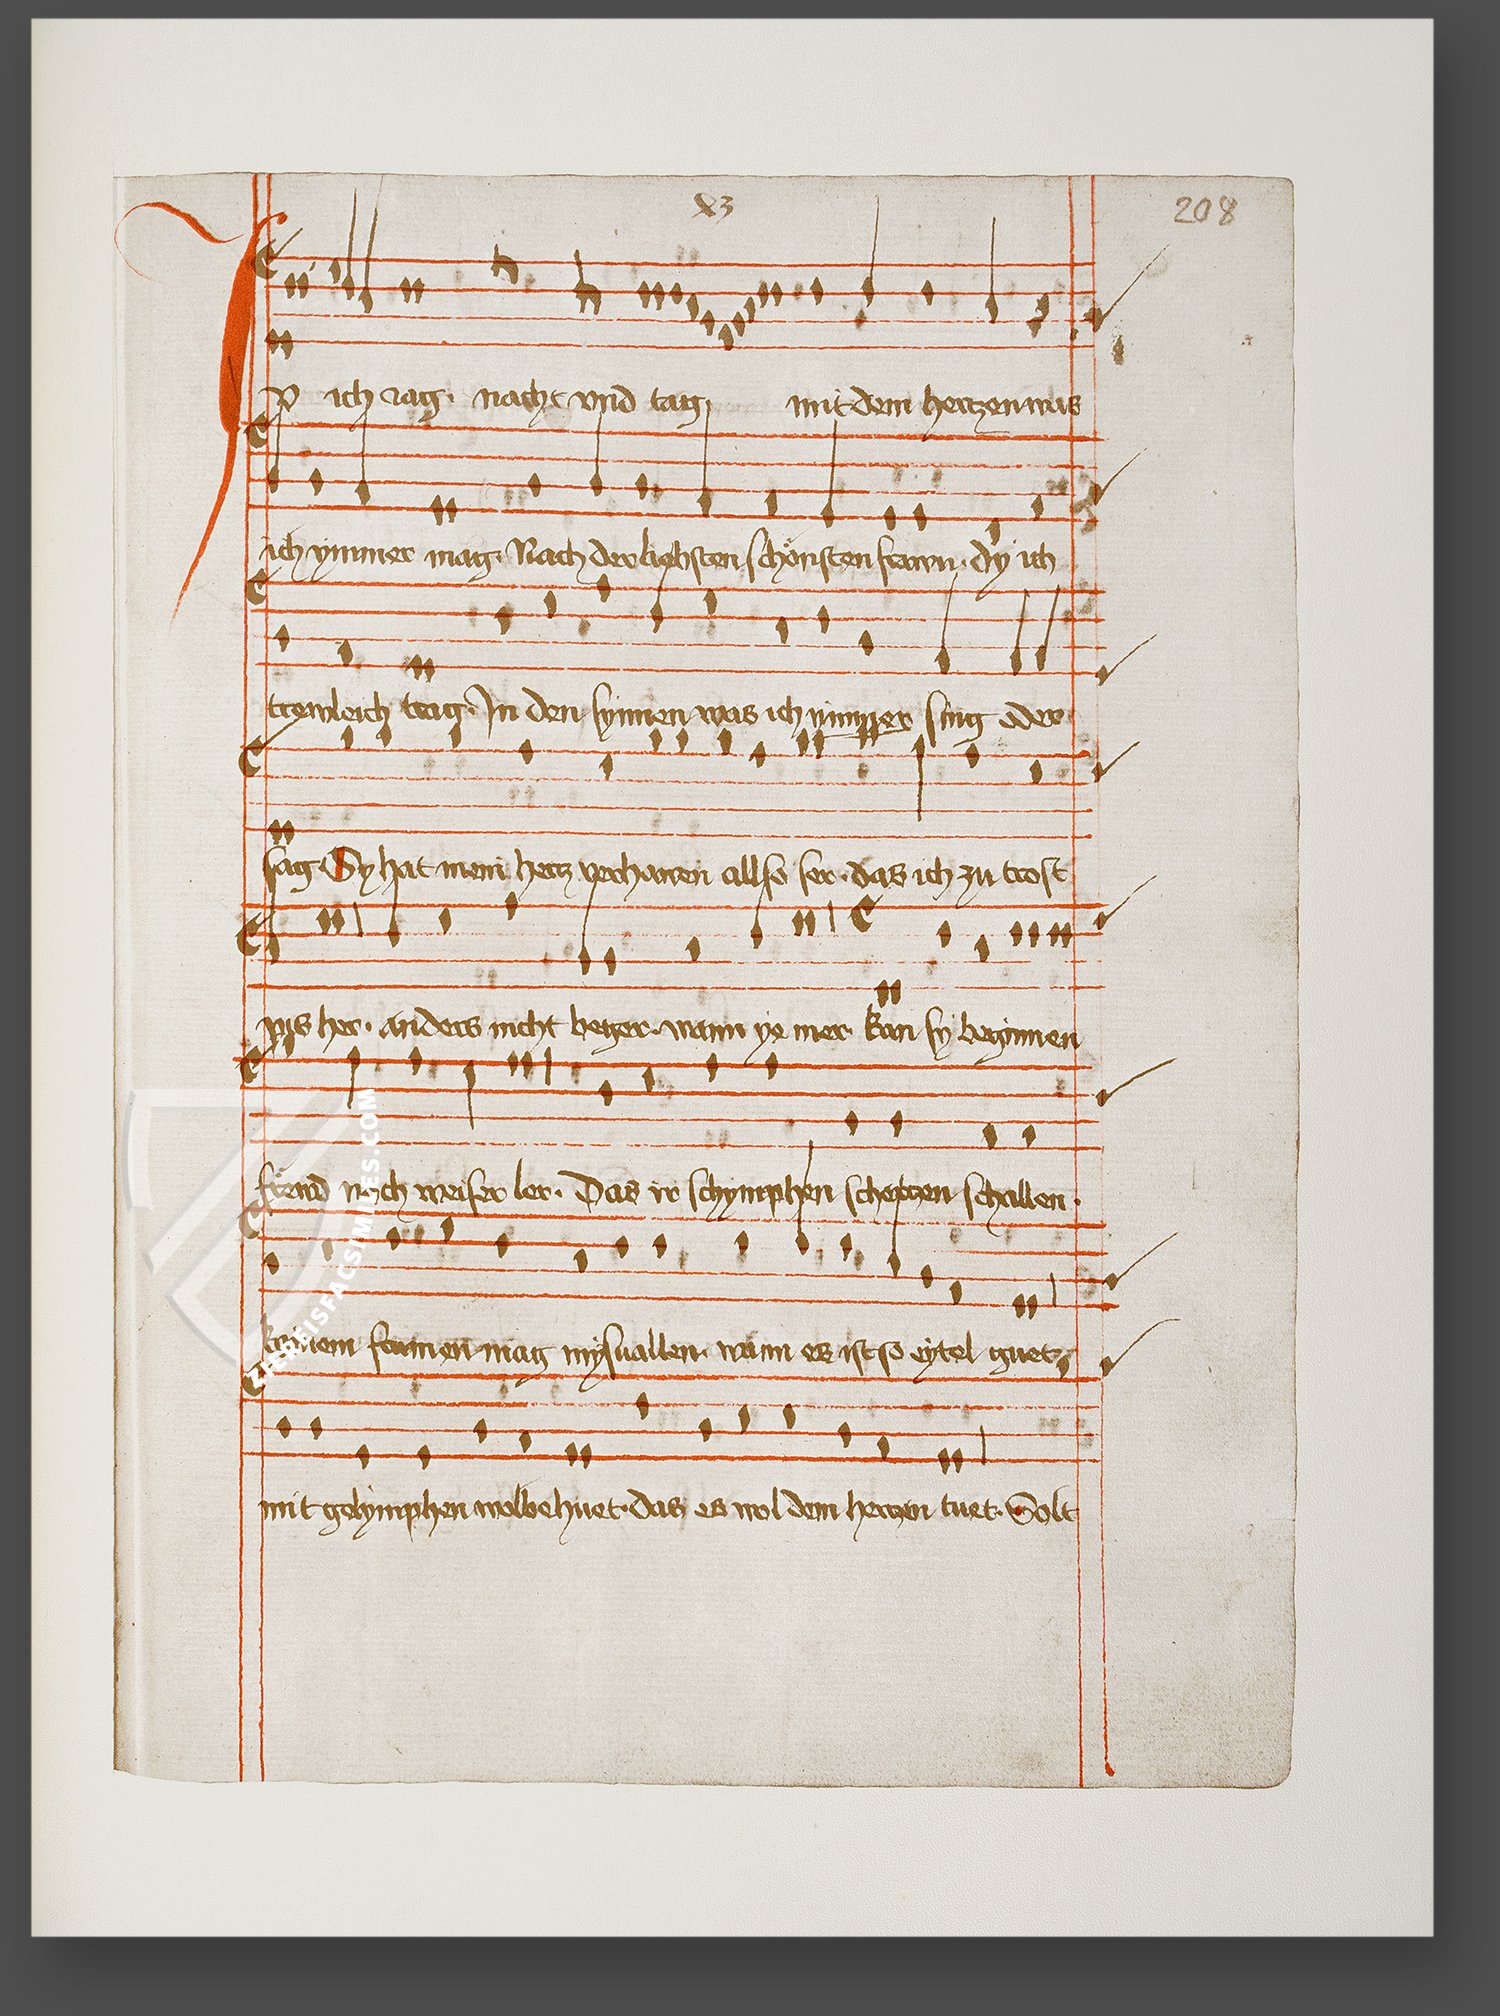 X3
208
Ip ich iag. nacht vnd tag mit dem hertzen was
ich ymmer mag. Nach der liebsten schönsten frawn. dy ich
trewleich trag. In den synnen was ich nymmer sing oder
sag. Sy hat mein hertz verhawen allso ser. das ich zu trost
pis her. anders nicht beger. wann ye mer kan sy beginnen
frewd nach weiser ler. Das ir schymphen schertzen schallen.
kainem frumen mag mysuallen. wann es ist so eytel guet,
mit gelymphen wolbehuet. das es wol dem hertzen tuet. Solt
ZIEREISFACSIMILES.COM